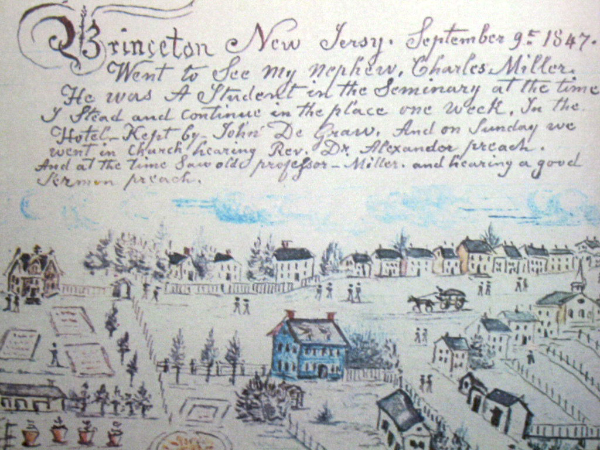 Princeton New Jersy. September 9th 1847.
Went to See my nephew, Charles. Miller.
He was A Student in the Seminary at the time
I Stead and continue in the place one week. In the.
Hotel – Kept by – John De Graw. And on Sunday we
went in Church hearing Rev. Dr. Alexander preach.
And at the time Saw old professor – Miller. and hearing a good
Sermon preach.